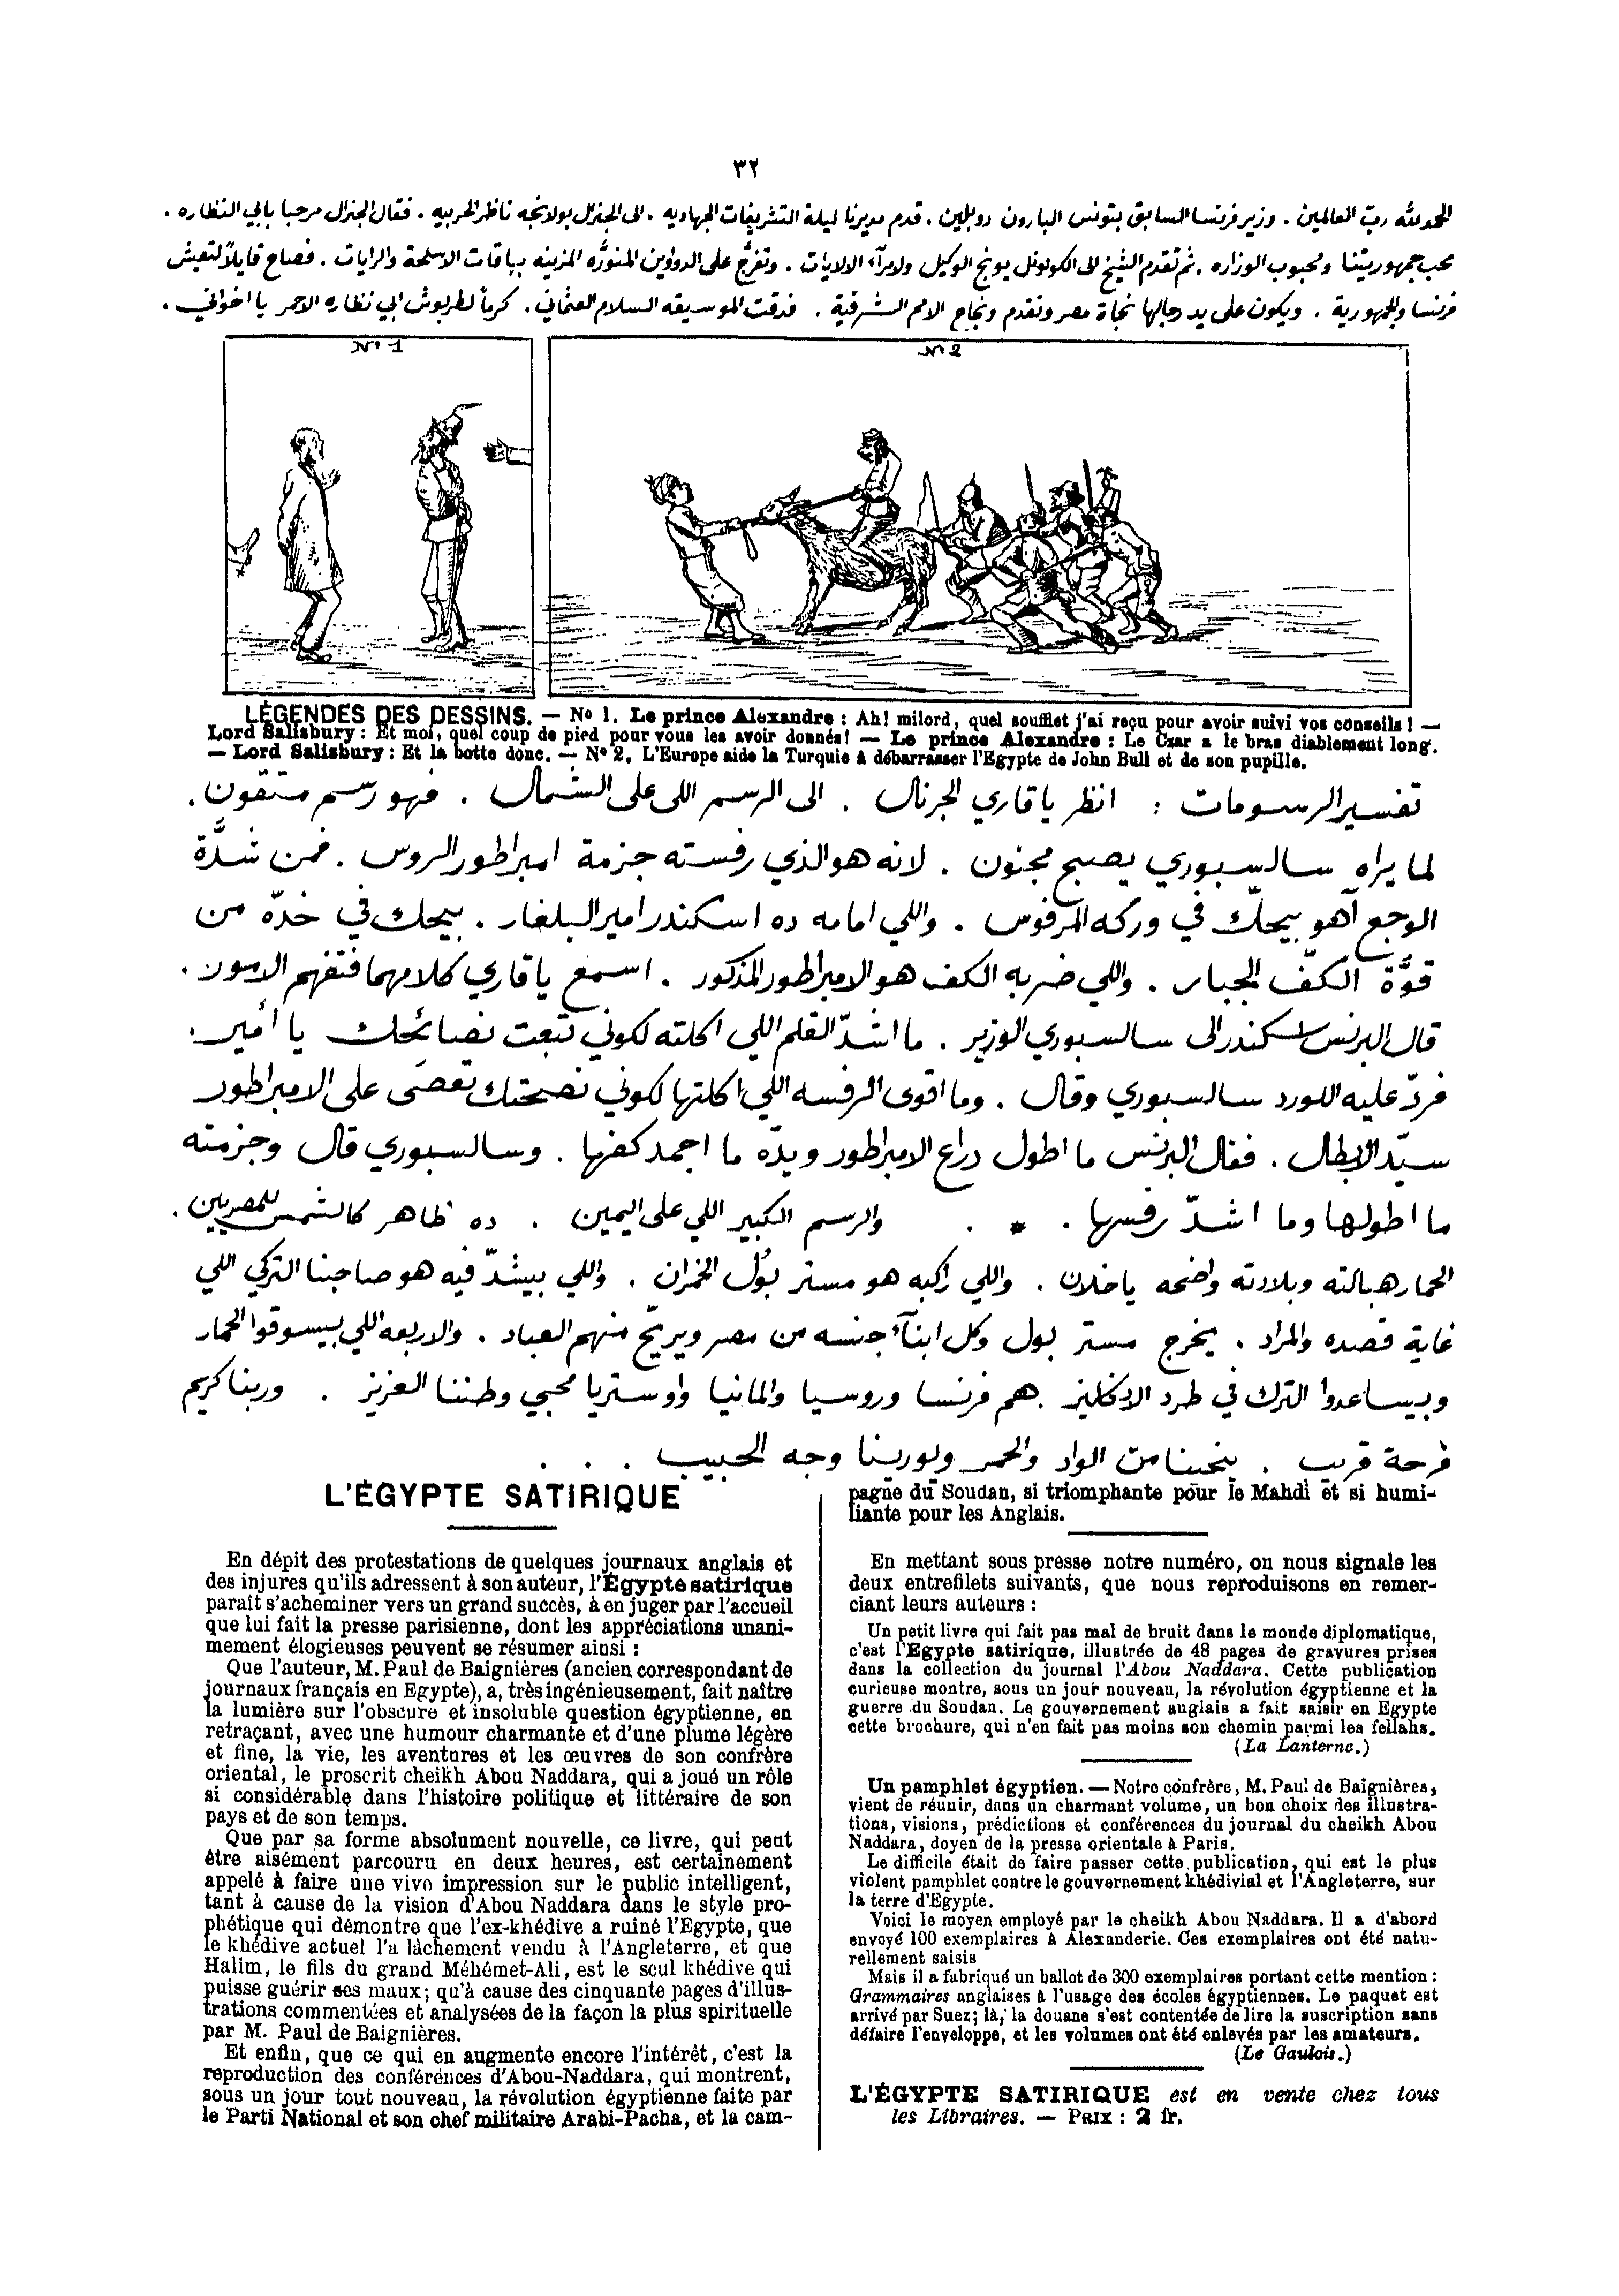 ٣٢
الحمد لله ربّ العالمين . وزير فرنسا السابق بتونس البارون دوبلين . قدم مديرنا ليلة التشريفات الجهاديه . الى الجنرال بولانجه ناظر الحربيه . فقال الجنرال مرحبا بابي النظاره .
محب جمهوريتنا ومحبوب الوزاره . ثم تقدم الشيخ الى الكولونل يونج الوكيل ولامرآء الالايات . وتفرَّج على الدواوين المنوّره المزينه بباقات الاسلحة والرايات . فصاح قايلاً لتعيش
فرنسا والجمهورية . ويكون على يد رجالها نجاة مصر وتقدم ونجاح الامم الشرقية . فدقت الموسيقه السلام العثماني . كرماً لطربوش ابي نظاره الاحمر يا اخواني .
Nº 1
Nº 2
LÉGENDES DES DESSINS. — Nº 1. Le prince Alexandre : Ah! milord, quel soufflet j'ai reçu pour avoir suivi vos conseils! —
Lord Salisbury : Et moi, quel coup de pied pour vous les avoir donnés! — Le prince Alexandre : Le Czar a le bras diablement long.
— Lord Salisbury : Et la botte donc. — Nº 2. L'Europe aide la Turquie à débarrasser l'Egypte de John Bull et de son pupille.
تفسير الرسومات : انظر يا قاري الجرنال . الى الرسم اللى على الشمال . فهو رسم متقون .
لما يراه سالسبوري يصبح مجنون . لانه هو الذي رفسته جزمة امبراطور الروس . فمن شدَّة
الوجع آهو بيحكّ في وركه المرفوس . واللي امامه ده اسكندر امير البلغار . بيحك في خدّه من
قوَّة الكفّ الجبار . واللي ضربه الكف هو الامبراطور المذكور . اسمع يا قاري كلامهما فتفهم الامور .
قال البرنس اسكندر الى سالسبوري الوزير . ما اشدّ القلم اللي اكلته لكوني تبعت نصائحك يا أمير .
فردّ عليه اللورد سالسبوري وقال . وما اقوى الرفسه اللي اكلتها لكوني نصحتك تعصَى على الامبراطور
سيّد الابطال . فقال البرنس ما اطول دراع الامبراطور ويدّه ما اجمد كفها . وسالسبوري قال وجزمته
ما اطولها وما اشدّ رفسها . * . والرسم الكبير اللي على اليمين . ده ظاهر كالشمس للمصريين .
الحمار هبالته وبلادته واضحه ياخلان . واللي راكبه هو مستر بُول الخمران . واللي بيشدّ فيه هو صاحبنا التركي اللي
غاية قصده والمراد . يخرج مستر بول وكل ابنآء جنسه من مصر ويريّح منهم العباد . والاربعه اللي بيسوقوا الحمار
وبيساعدوا الترك في طرد الانكليز . هم فرنسا وروسيا والمانيا واوستريا محبي وطننا العزيز . وربنا كريم
فرحة قريب . ينجينا من الواد والحمر ويورينا وجه الحبيب . . .
L'ÉGYPTE SATIRIQUE
En dépit des protestations de quelques journaux anglais et
des injures qu'ils adressent à son auteur, l'Égypte satirique
parait s'acheminer vers un grand succès, à en juger par l'accueil
que lui fait la presse parisienne, dont les appréciations unani-
mement élogieuses peuvent se résumer ainsi :
Que l'auteur, M. Paul de Baignières (ancien correspondant de
journaux français en Egypte), a, très ingénieusement, fait naître
la lumière sur l'obscure et insoluble question égyptienne, en
retraçant, avec une humour charmante et d'une plume légère
et fine, la vie, les aventures et les œuvres de son confrère
oriental, le proscrit cheikh Abou Naddara, qui a joué un rôle
si considérable dans l'histoire politique et littéraire de son
pays et de son temps.
Que par sa forme absolument nouvelle, ce livre, qui peut
être aisément parcouru en deux heures, est certainement
appelé à faire une vive impression sur le public intelligent,
tant à cause de la vision d'Abou Naddara dans le style pro-
phétique qui démontre que l'ex-khédive a ruiné l'Egypte, que
le khédive actuel l'a lâchement vendu à l'Angleterre, et que
Halim, le fils du grand Méhémet-Ali, est le seul khédive qui
puisse guérir ses maux ; qu'à cause des cinquante pages d'illus-
trations commentées et analysées de la façon la plus spirituelle
par M. Paul de Baignières.
Et enfin, que ce qui en augmente encore l'intérêt, c'est la
reproduction des conférences d'Abou-Naddara, qui montrent,
sous un jour tout nouveau, la révolution égyptienne faite par
le Parti National et son chef militaire Arabi-Pacha, et la cam-
pagne du Soudan, si triomphante pour le Mahdi et si humi-
liante pour les Anglais.
En mettant sous presse notre numéro, on nous signale les
deux entrefilets suivants, que nous reproduisons en remer-
ciant leurs auteurs :
Un petit livre qui fait pas mal de bruit dans le monde diplomatique,
c'est l'Egypte satirique, illustrée de 48 pages de gravures prises
dans la collection du journal l'Abou Naddara. Cette publication
curieuse montre, sous un jour nouveau, la révolution égyptienne et la
guerre du Soudan. Le gouvernement anglais a fait saisir en Egypte
cette brochure, qui n'en fait pas moins son chemin parmi les fellahs.
(La Lanterne.)
Un pamphlet égyptien. — Notre confrère, M. Paul de Baignières,
vient de réunir, dans un charmant volume, un bon choix des illustra-
tions, visions, prédictions et conférences du journal du cheikh Abou
Naddara, doyen de la presse orientale à Paris.
Le difficile était de faire passer cette publication, qui est le plus
violent pamphlet contre le gouvernement khédivial et l'Angleterre, sur
la terre d'Egypte.
Voici le moyen employé par le cheikh Abou Naddara. Il a d'abord
envoyé 100 exemplaires à Alexanderie. Ces exemplaires ont été natu-
rellement saisis
Mais il a fabriqué un ballot de 300 exemplaires portant cette mention :
Grammaires anglaises à l'usage des écoles égyptiennes. Le paquet est
arrivé par Suez ; là, la douane s'est contentée de lire la suscription sans
défaire l'enveloppe, et les volumes ont été enlevés par les amateurs.
(Le Gaulois.)
L'ÉGYPTE SATIRIQUE est en vente chez tous
les Libraires. — PRIX : 2 fr.